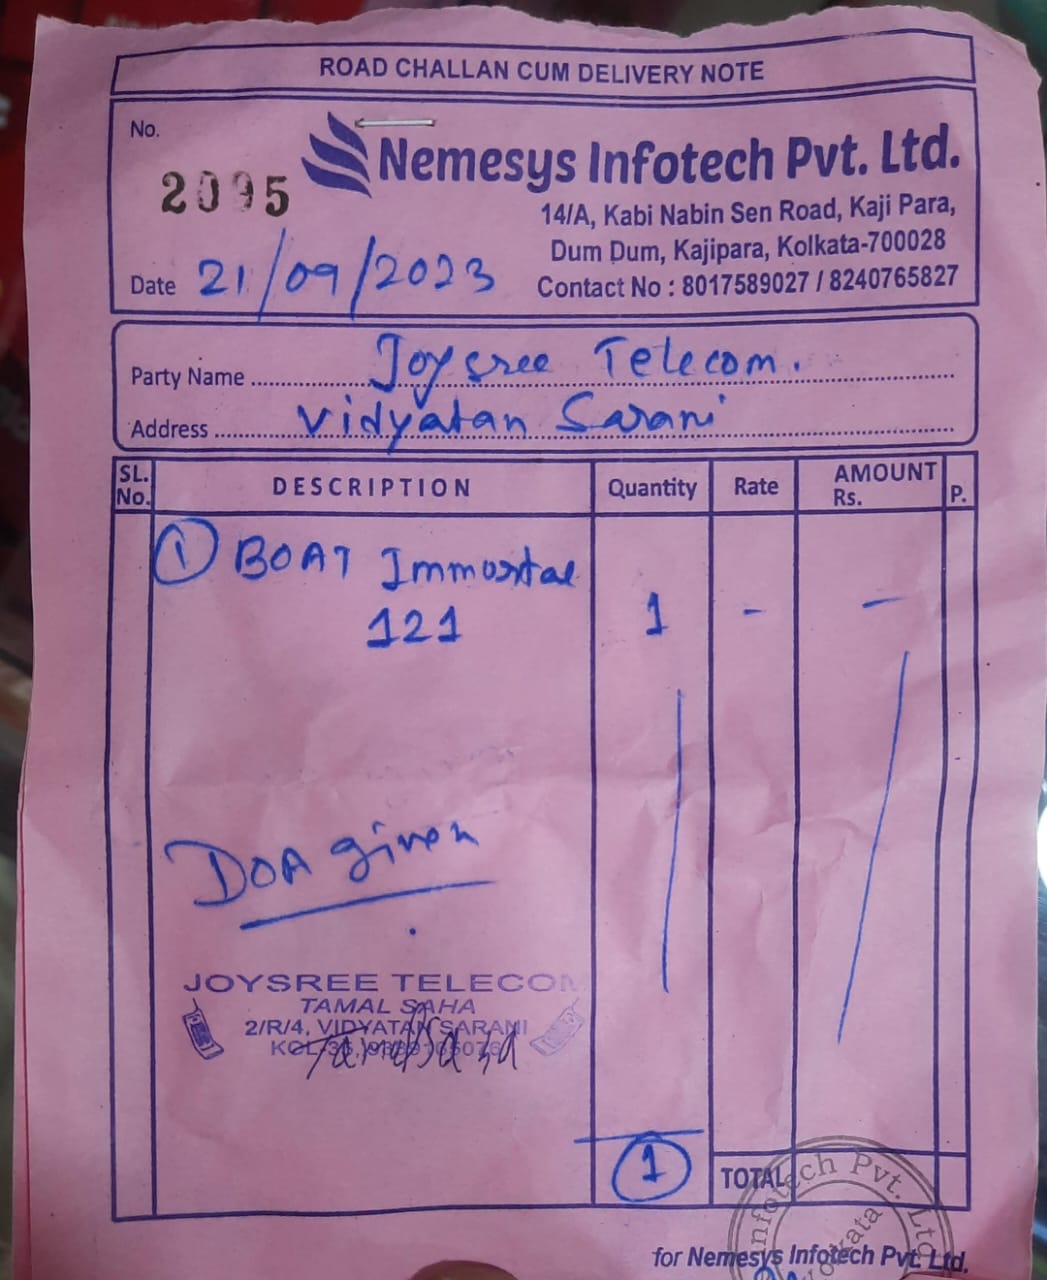 ROAD CHALLAN CUM DELIVERY NOTE
No.
2095
Nemesys Infotech Pvt. Ltd.
14/A, Kabi Nabin Sen Road, Kaji Para,
Dum Dum, Kajipara, Kolkata-700028
Contact No : 8017589027 / 8240765827
Date 21/09/2023
Party Name Joysree Telecom.
Address Vidyatan Sarani
SL. No. DESCRIPTION Quantity Rate AMOUNT Rs. P.
1 BOAT Immortal
121 1 - -
DOA given
JOYSREE TELECOM
TAMAL SAHA
2/R/4, VIDYATAN SARANI
KOL-35,
Tamal Saha
1 TOTAL
Infotech Pvt. Ltd
Kolkata
for Nemesys Infotech Pvt. Ltd.